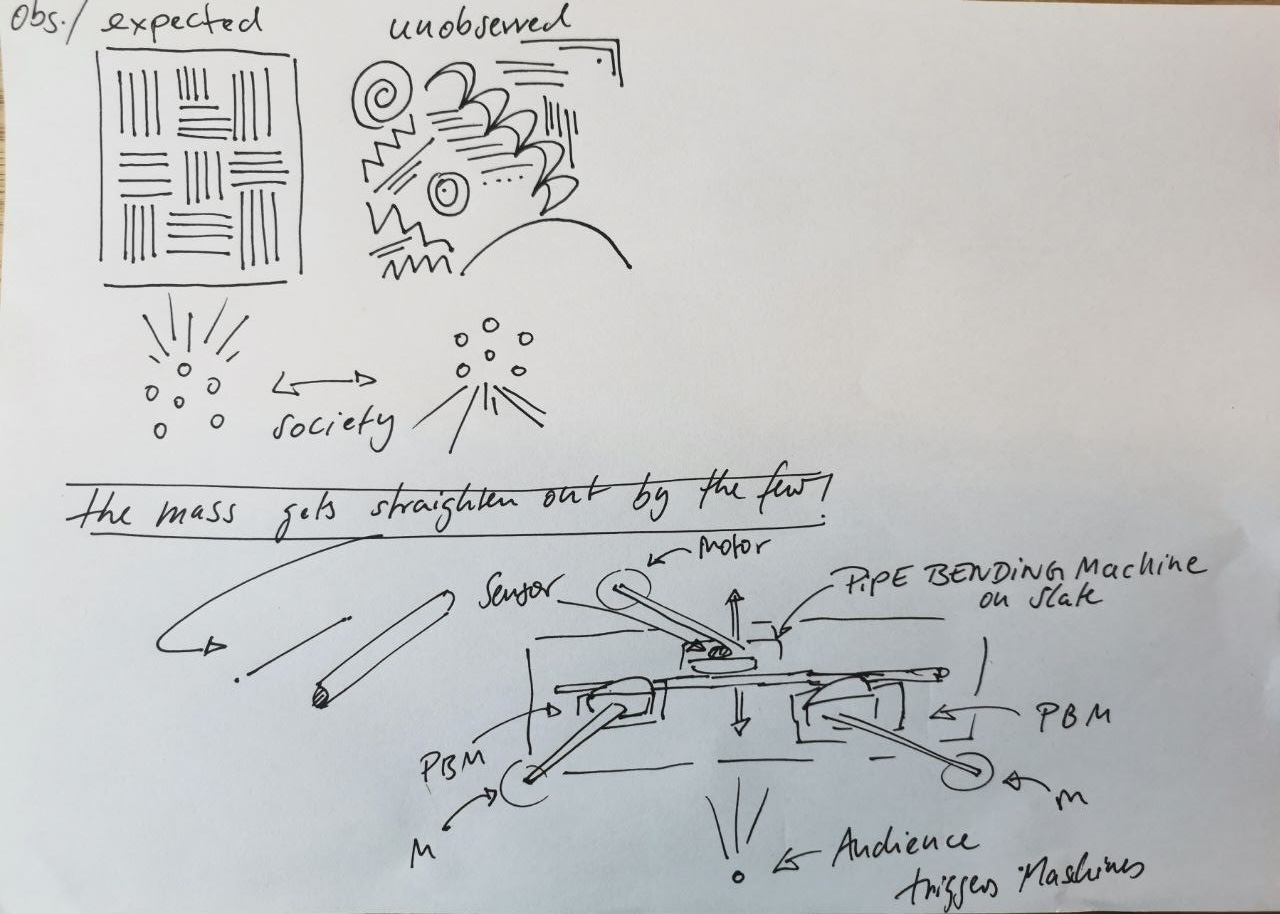 Obs./ expected
unobserved
society
the mass gets straighten out by the few!
Motor
Sensor
PiPE BENDiNG Machine
on slate
PBM
PBM
M
M
Audience
triggers Maschines